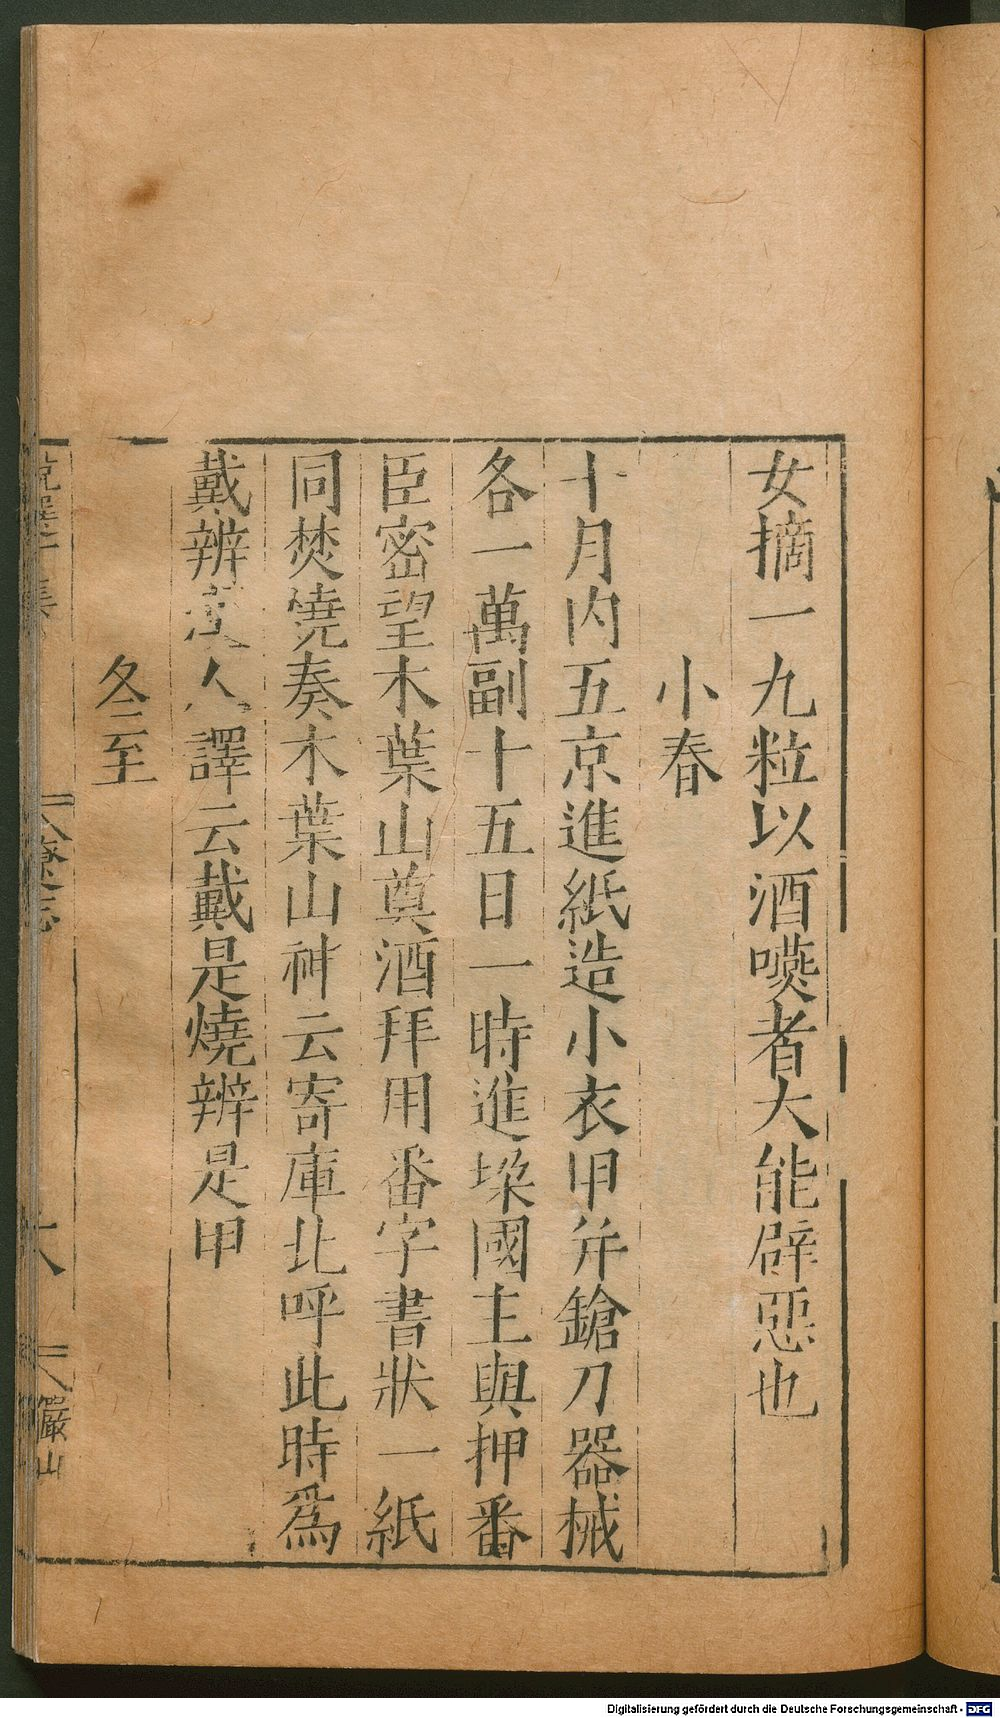 女摘一九粒以酒嚥者大能辟惡也
小春
十月內五京進紙造小衣甲并鎗刀器械
各一萬副十五日一時進垛國主與押番
臣密望木葉山奠酒拜用番字書狀一紙
同焚燒奏木葉山神云寄庫北呼此時爲
戴辦漢人譯云戴是燒辦是甲
冬至
說選 集
遼志
八
儼山
Digitalisierung gefördert durch die Deutsche Forschungsgemeinschaft - DFG